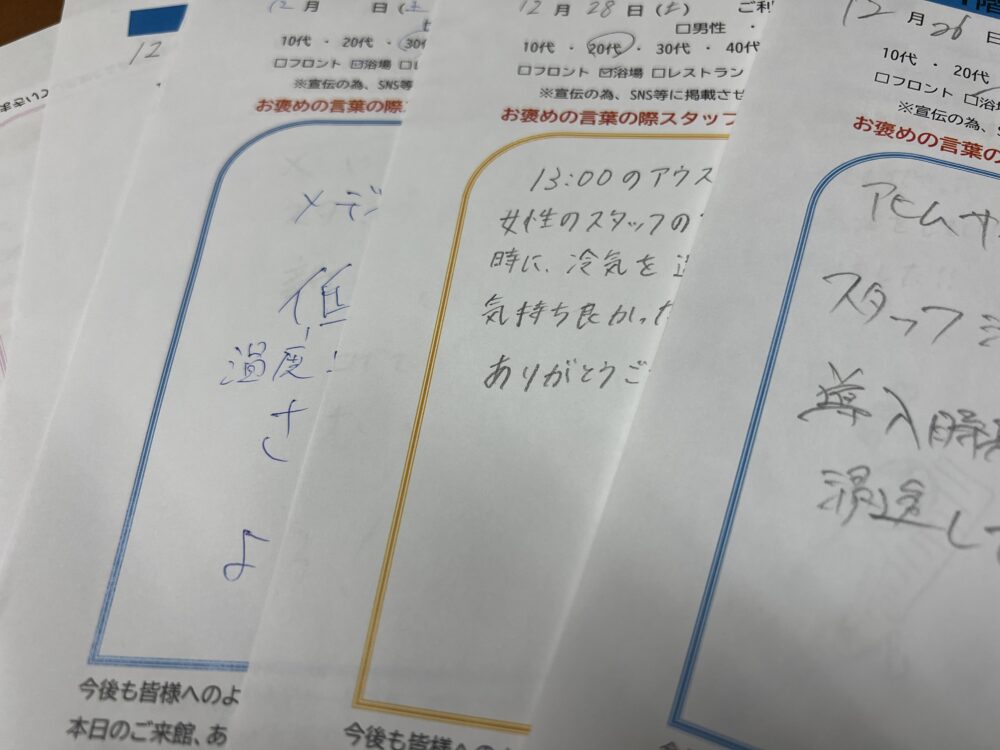 12
12月 日(土
10代・20代・30代
□フロント ☑浴場 □レ
※宣伝の為、SNS等
お褒めの言葉の際
メディ
低
温度
さ
よ
今後も皆様へのよ
本日のご来館、あ
12月28日(土) ご利
□男性・
10代・20代・30代・40代
□フロント ☑浴場 □レストラン
※宣伝の為、SNS等に掲載させ
お褒めの言葉の際スタッフ
13:00のアウス
女性のスタッフの
時に、冷気を
気持ち良かった
ありがとうご
今後も皆様へのよ
階
12月26日
10代・20代
□フロント □浴場
※宣伝の為、S
お褒めの言葉の
アヒムサ
スタッフ
導入時
今後も